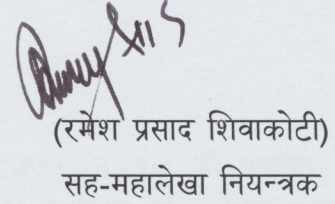 (रमेश प्रसाद शिवाकोटी)
सह-महालेखा नियन्त्रक